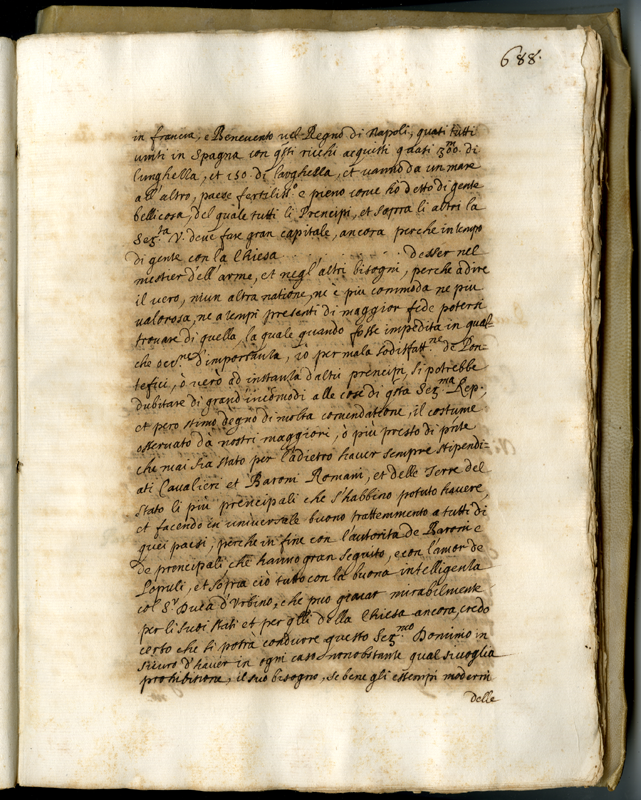 688.
in francia, e Benevento nel Regno di Napoli, quasi tutti
uniti in Spagna con qsti ricchi acquisti qdati 300.m di
lunghezza, et 150. di larghezza, et vanno da un mare
all'altro, paese fertiliss.o e pieno come ho detto di gente
bellicosa, del quale tutti li Prencipi, et sopra li altri la
Ser.ta V. deve fare gran capitale, ancora perche in tempo
di gente con la Chiesa . . . . . . . . desser nel
mestier dell'arme, et negl'altri bisogni, perche à dire
il vero, niun altra natione, ne è piu commoda ne piu
valorosa, ne a tempi presenti di maggior fede potersi
trovare di quella, la quale quando fosse impedita in qual=
che occ.ne d'importanza, ò per mala sodisfatt.ne de Pon=
tefici, ò verò ad instanza d'altri prencipi, si potrebbe
dubitare di grand'incomodi alle cose di qsta Ser.ma Rep.,
et però stimo degno di molta comendatione, il costume
osservato dà nostri maggiori, ò più presto di prnte
che mai sia stato per l'adietro haver sempre stipendi=
ati Cavalieri et Baroni Romani, et delle Terre del
stato li più prencipali che s'habbino potuto havere,
et facendo in universale buono trattemmento a tutti di
quei paesi, perche in fine con l'autorita de Baroni e
de prencipali che hanno gran seguito, e con l'amor de
Populi, et sopra ciò tutto con la buona intelligenza
col S.r Duca d'Urbino, che può giovar mirabilmente
per li suoi stati et per qlli della Chiesa ancora, credo
certo che si potrà condurre questo Ser.mo Dominio in
sicuro d'haver in ogni caso nonobstante qual si voglia
prohibitione, il suo bisogno, se bene gli essempi moderni
delle